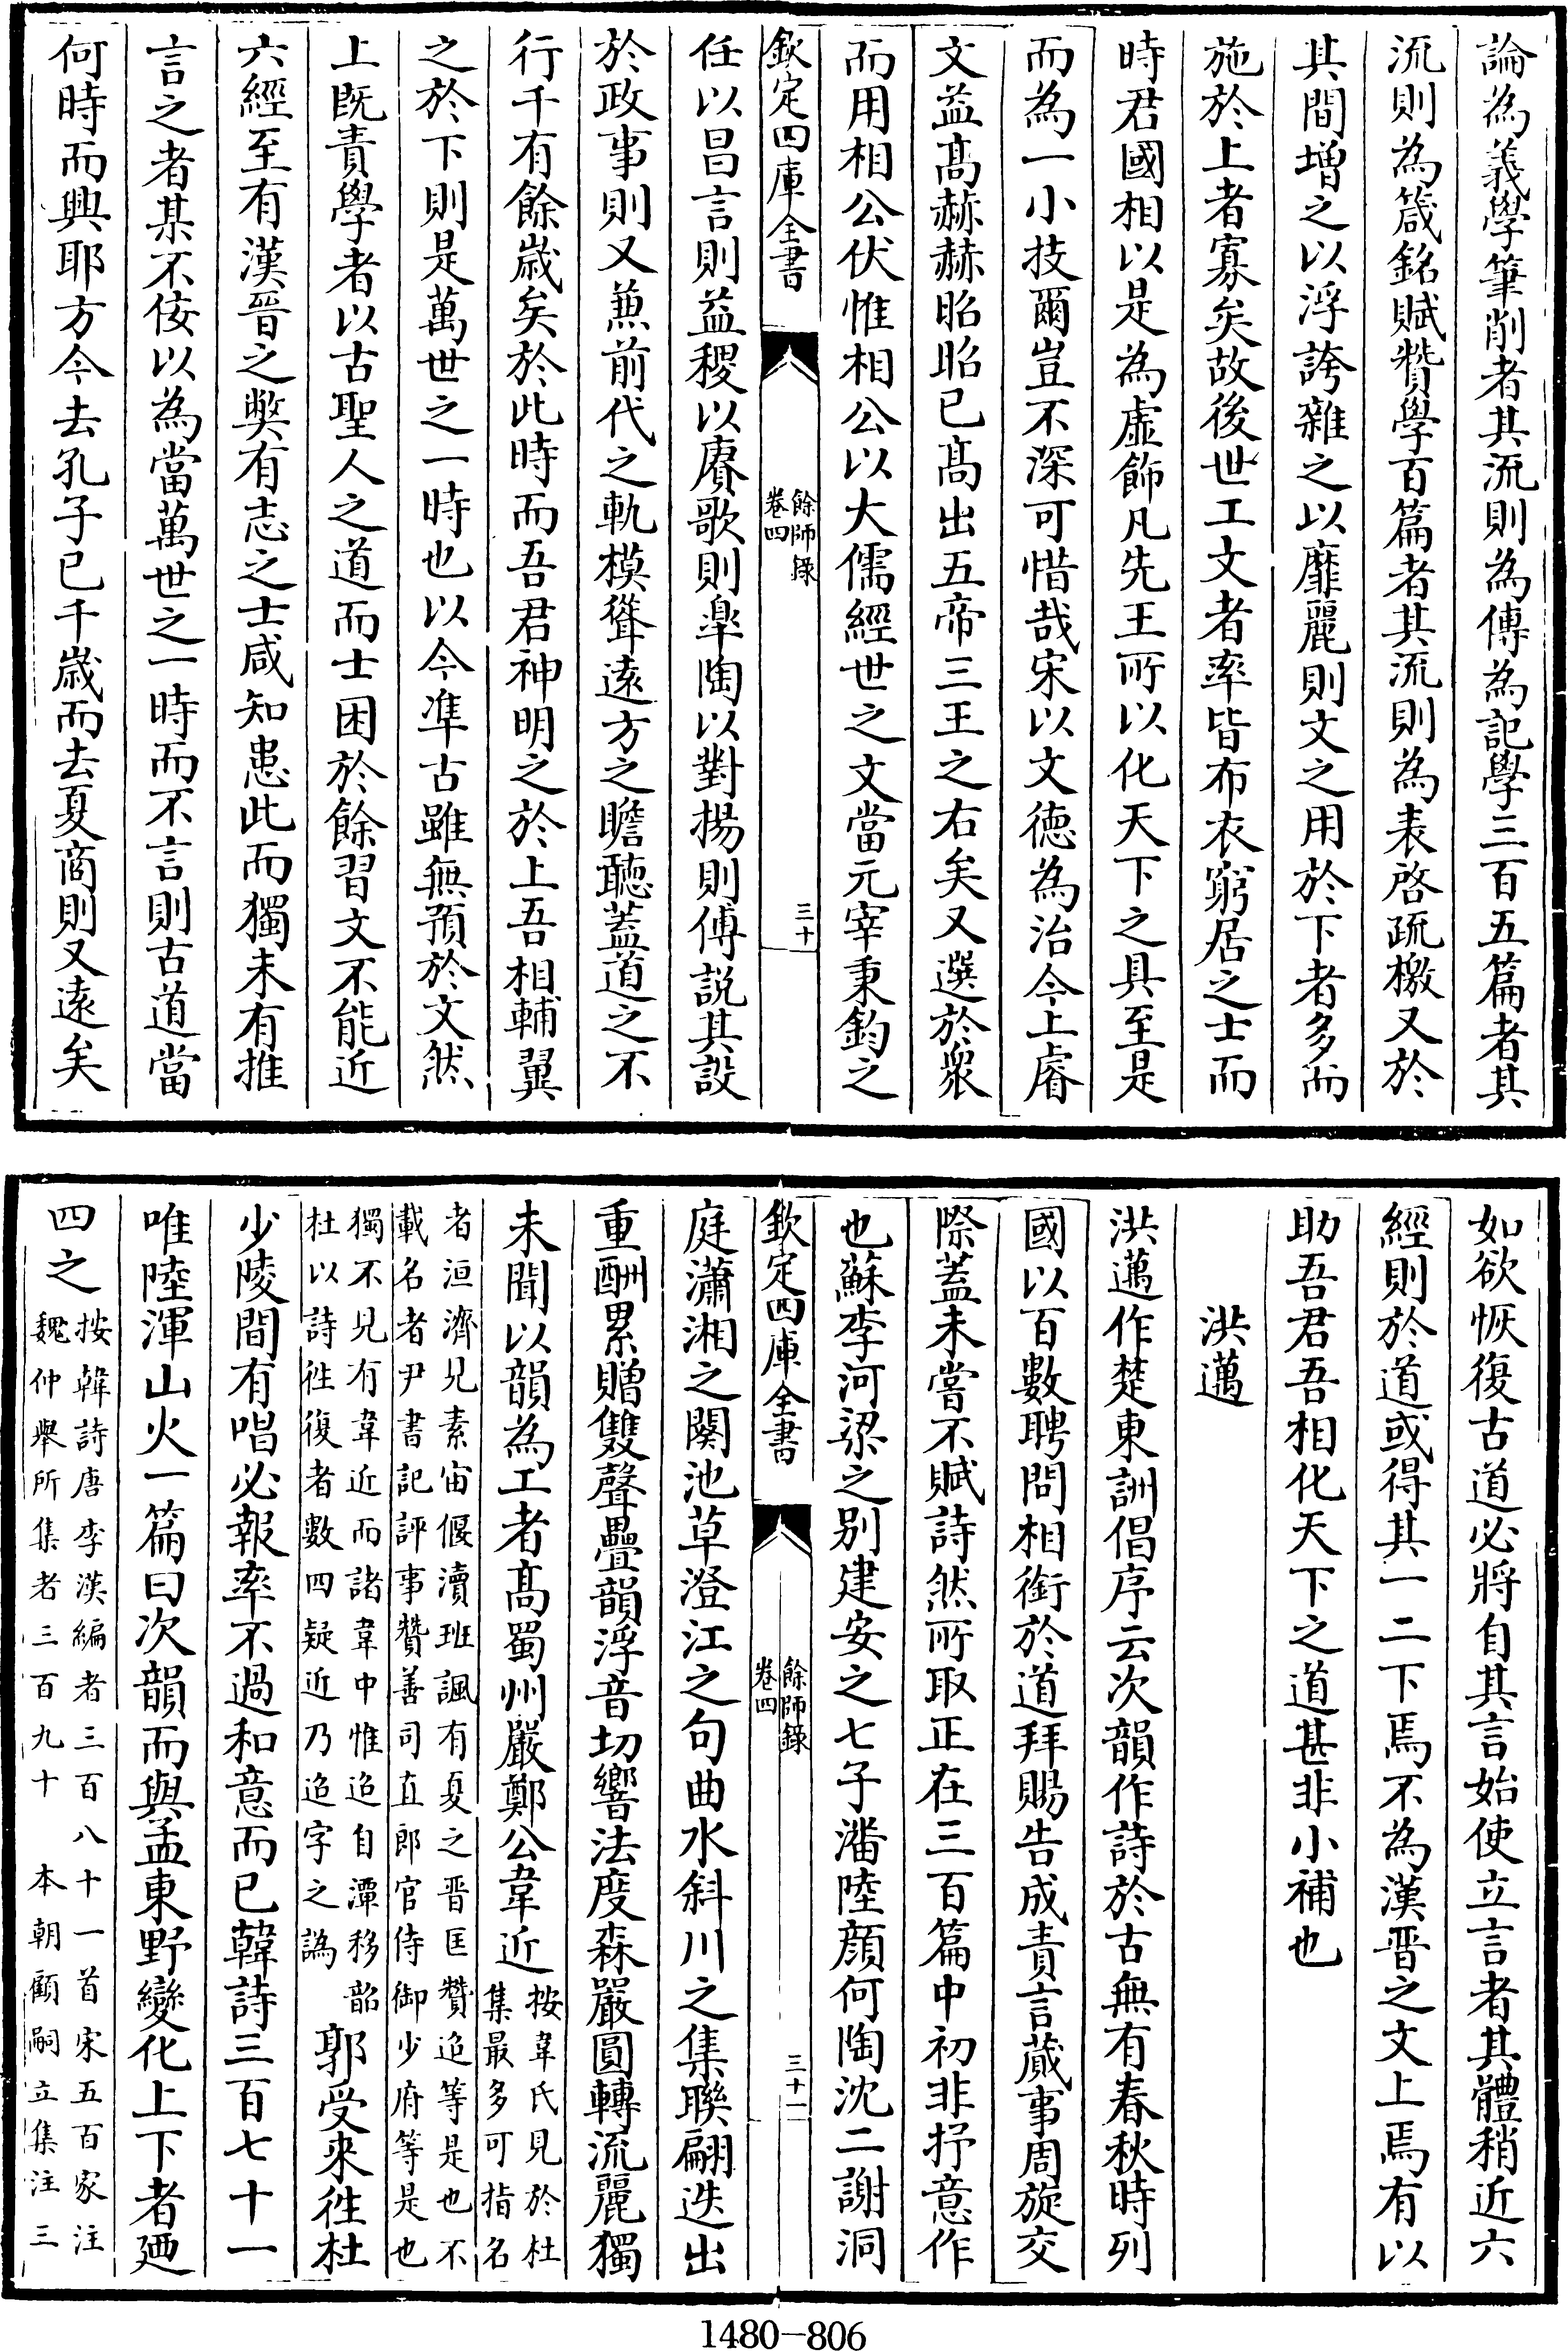 論為義學筆削者其流則為傳為記學三百五篇者其
流則為箴銘賦贊學百篇者其流則為表啓疏檄又於
其間增之以浮誇雜之以靡麗則文之用於下者多而
施於上者寡矣故後世工文者率皆布衣窮居之士而
時君國相以是為虛飾凡先王所以化天下之具至是
而為一小技爾豈不深可惜哉宋以文德為治今上睿
文益髙赫赫昭昭已髙出五帝三王之右矣又選於衆
而用相公伏惟相公以大儒經世之文當元宰秉鈞之
欽定四庫全書
餘師錄
卷四
三十
任以昌言則益稷以賡歌則臯陶以對揚則傅説其設
於政事則又兼前代之軌模聳遠方之瞻聽蓋道之不
行千有餘歲矣於此時而吾君神明之於上吾相輔翼
之於下則是萬世之一時也以今凖古雖無預於文然
上既責學者以古聖人之道而士困於餘習文不能近
六經至有漢晉之獘有志之士咸知患此而獨未有推
言之者某不佞以為當萬世之一時而不言則古道當
何時而興耶方今去孔子已千歲而去夏商則又遠矣
如欲恢復古道必將自其言始使立言者其體稍近六
經則於道或得其一二下焉不為漢晉之文上焉有以
助吾君吾相化天下之道甚非小補也
洪邁
洪邁作楚東詶倡序云次韻作詩於古無有春秋時列
國以百數聘問相銜於道拜賜告成責言蕆事周旋交
際蓋未嘗不賦詩然所取正在三百篇中初非抒意作
也蘇李河梁之别建安之七子潘陸顔何陶沈二謝洞
欽定四庫全書
餘師錄
卷四
三十一
庭瀟湘之闋池草澄江之句曲水斜川之集聯翩迭出
重酬累贈雙聲疊韻浮音切響法度森嚴圓轉流麗獨
未聞以韻為工者髙蜀州嚴鄭公韋近按韋氏見於杜
集最多可指名
者洹濟見素宙偃瀆班諷有夏之晋匡贊迨等是也不
載名者尹書記評事贊善司直郎官侍御少府等是也
獨不見有韋近而諸韋中惟迨自潭移韶
杜以詩徃復者數四疑近乃迨字之譌
郭受來徃杜
少陵間有唱必報率不過和意而已韓詩三百七十一
唯陸渾山火一篇曰次韻而與孟東野變化上下者廼
四之按韓詩唐李漢編者三百八十一首宋五百家注
魏仲舉所集者三百九十 本朝顧嗣立集注三
1480-806